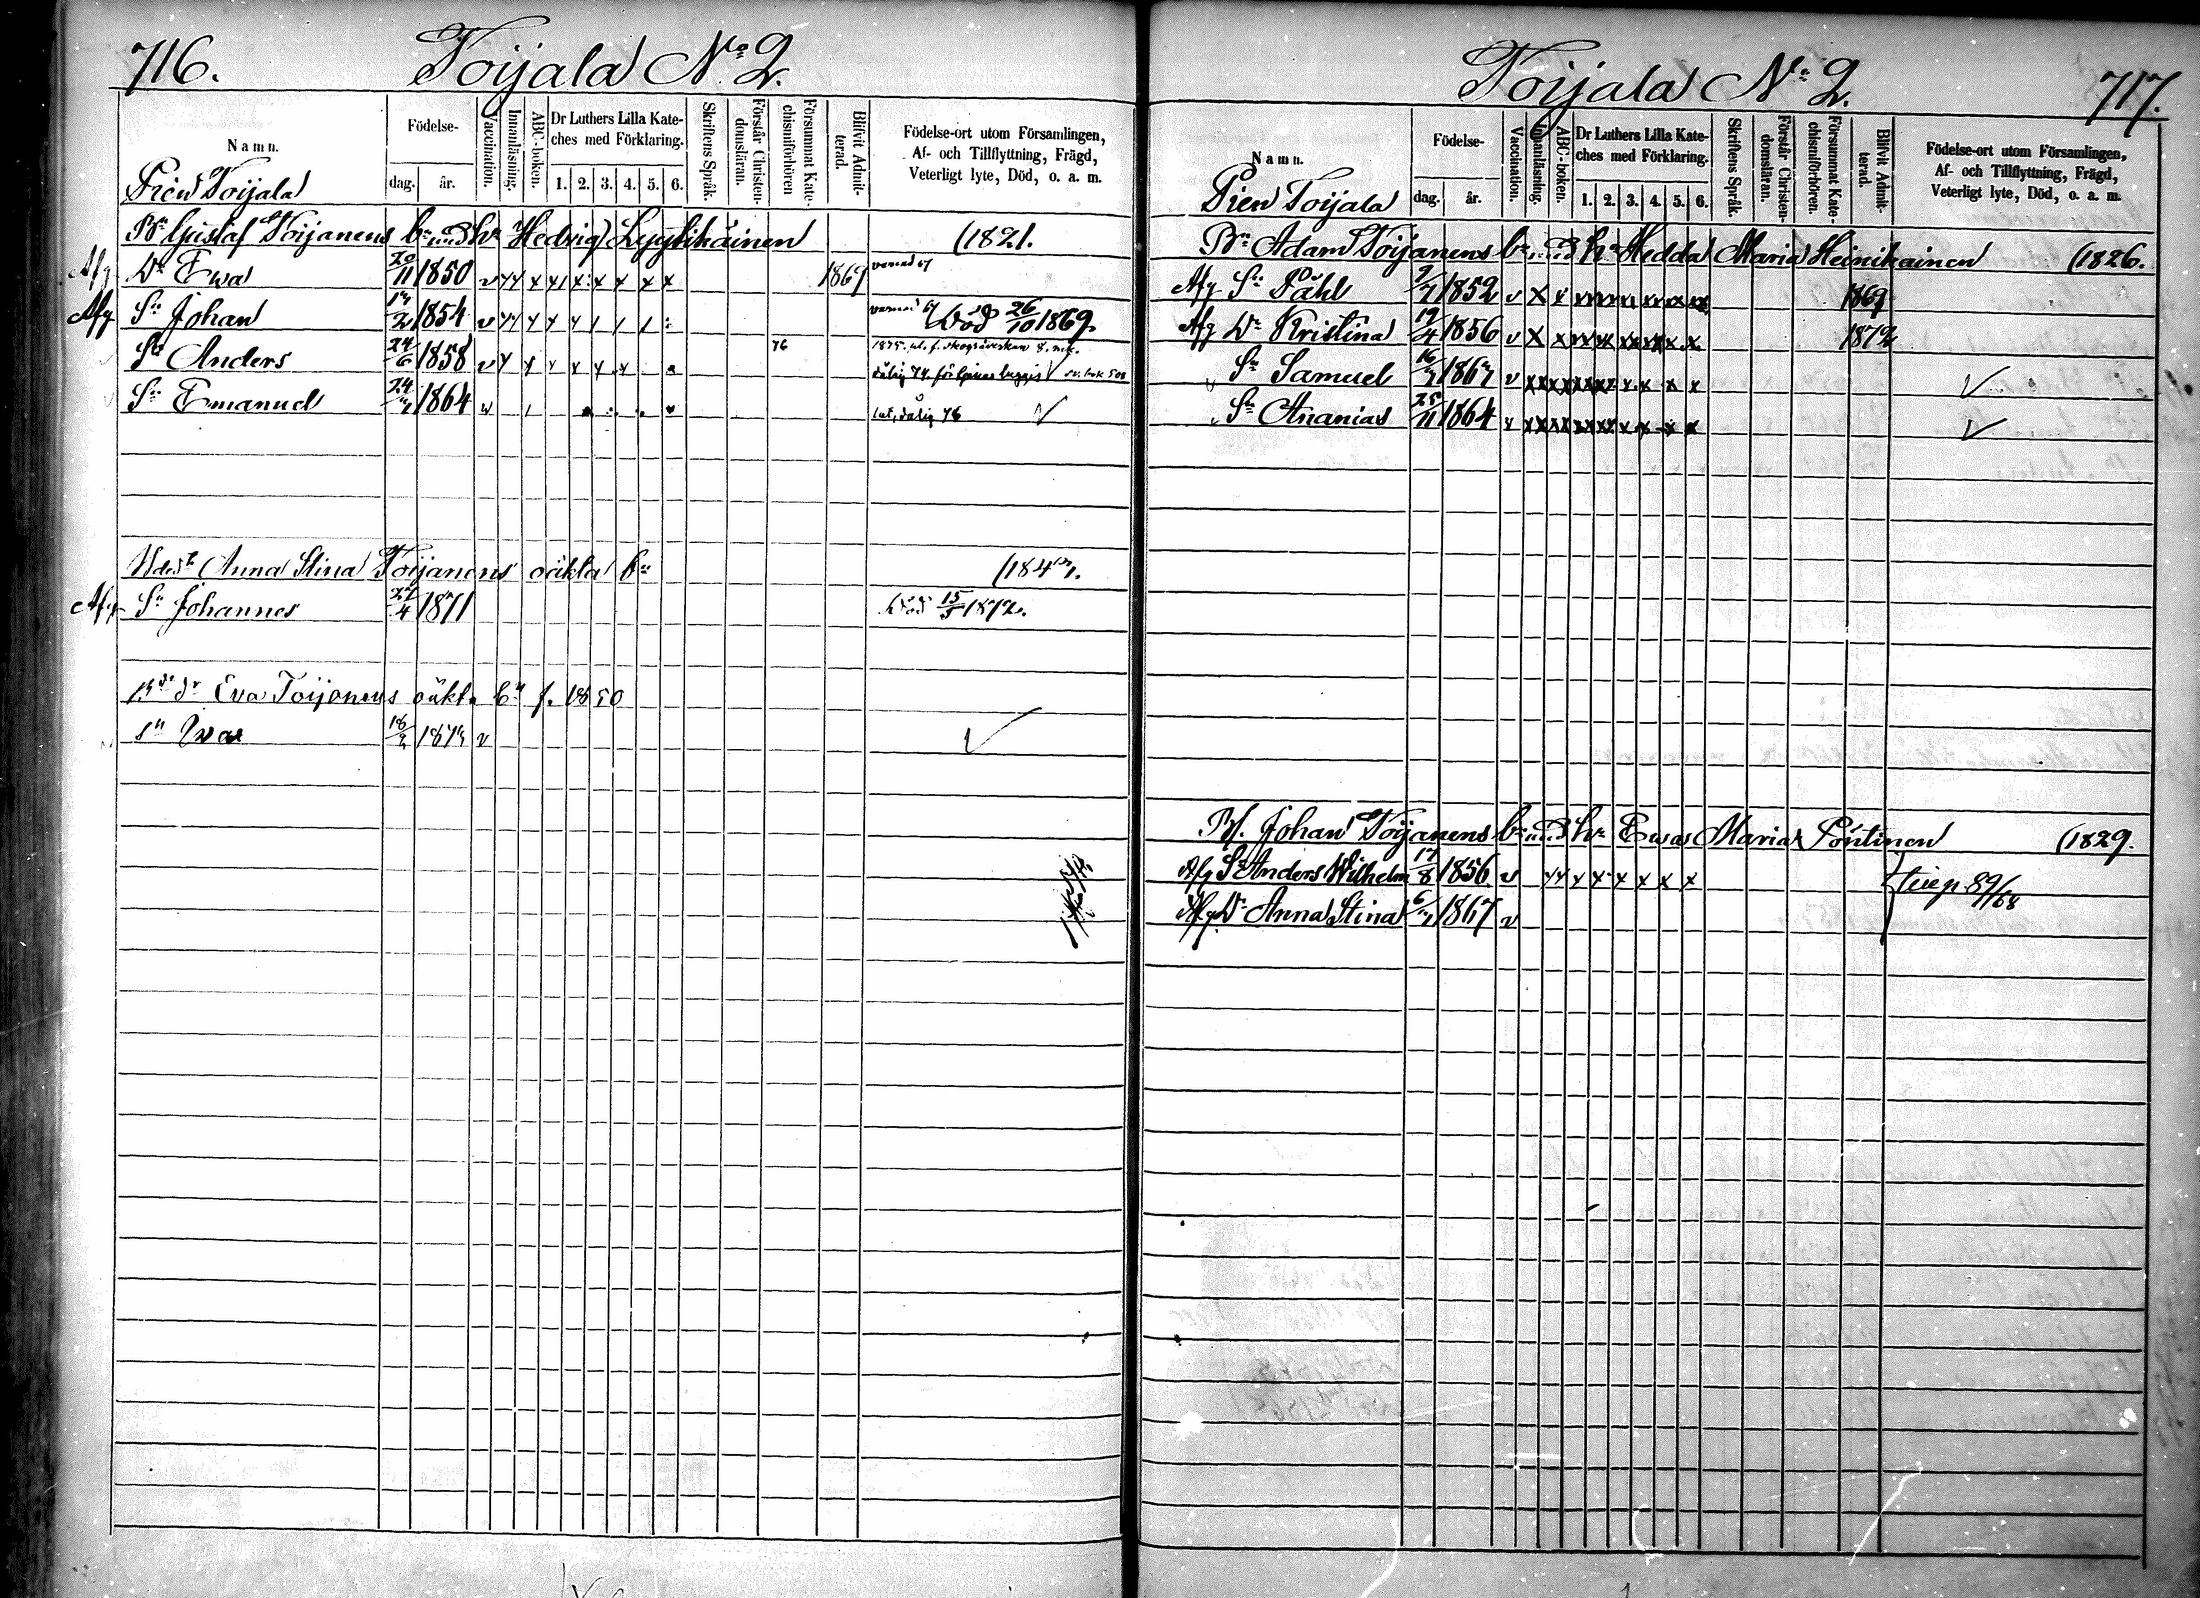 716.
Toijala N:o 2.
Namn.
Födelse-
dag. år.
Vaccination.
Innanläsning.
ABC-boken.
Dr Luthers Lilla Kate-
ches med Förklaring.
1. 2. 3. 4. 5. 6.
Skriftens Språk.
Förstår Christen-
domsläran.
Försummat Kate-
chismiförhören
Blifvit Admit-
terad.
Födelse-ort utom Församlingen,
Af- och Tillflyttning, Frägd,
Veterligt lyte, Död, o. a. m.
Pien Toijala
Bn Gustaf Toijanens bn und hn Hedvig Lyytikäinen (1821.
Afg Dr Ewa 20/11 1850 v 1869
Afg Sn Johan 1854 v Död 26/10 1869.
Sn Anders 24/6 1858 v 76
Sn Emanuel 1864 v
Anna Stina Toijanens oäkta bn
Afg Sn Johannes 1871 Död 1872.
dr Eva Toijanens oäkta bn f. 1850
sn 1873 v
Toijala N:o 2.
717.
Namn.
Födelse-
dag. år.
Vaccination.
Innanläsning.
ABC-boken.
Dr Luthers Lilla Kate-
ches med Förklaring.
1. 2. 3. 4. 5. 6.
Skriftens Språk.
Förstår Christen-
domsläran.
Försummat Kate-
chismiförhören.
Blifvit Admit-
terad.
Födelse-ort utom Församlingen,
Af- och Tillflyttning, Frägd,
Veterligt lyte, Död, o. a. m.
Pien Toijala
Bn Adam Toijanens bn und hn Hedda Maria Heinikainen (1826.
Afg Sn Påhl 1852 v 1869
Afg Dr Kristina 19/4 1856 v 1872
Sn Samuel 1867 v
Sn Ananias 25/11 1864 v
Johan Toijanens bn und hn Ewa Maria Pöntinen (1829.
Afg Sn Anders Wilhelm 17/8 1856 v
Afg Dr Anna Stina 1867 v